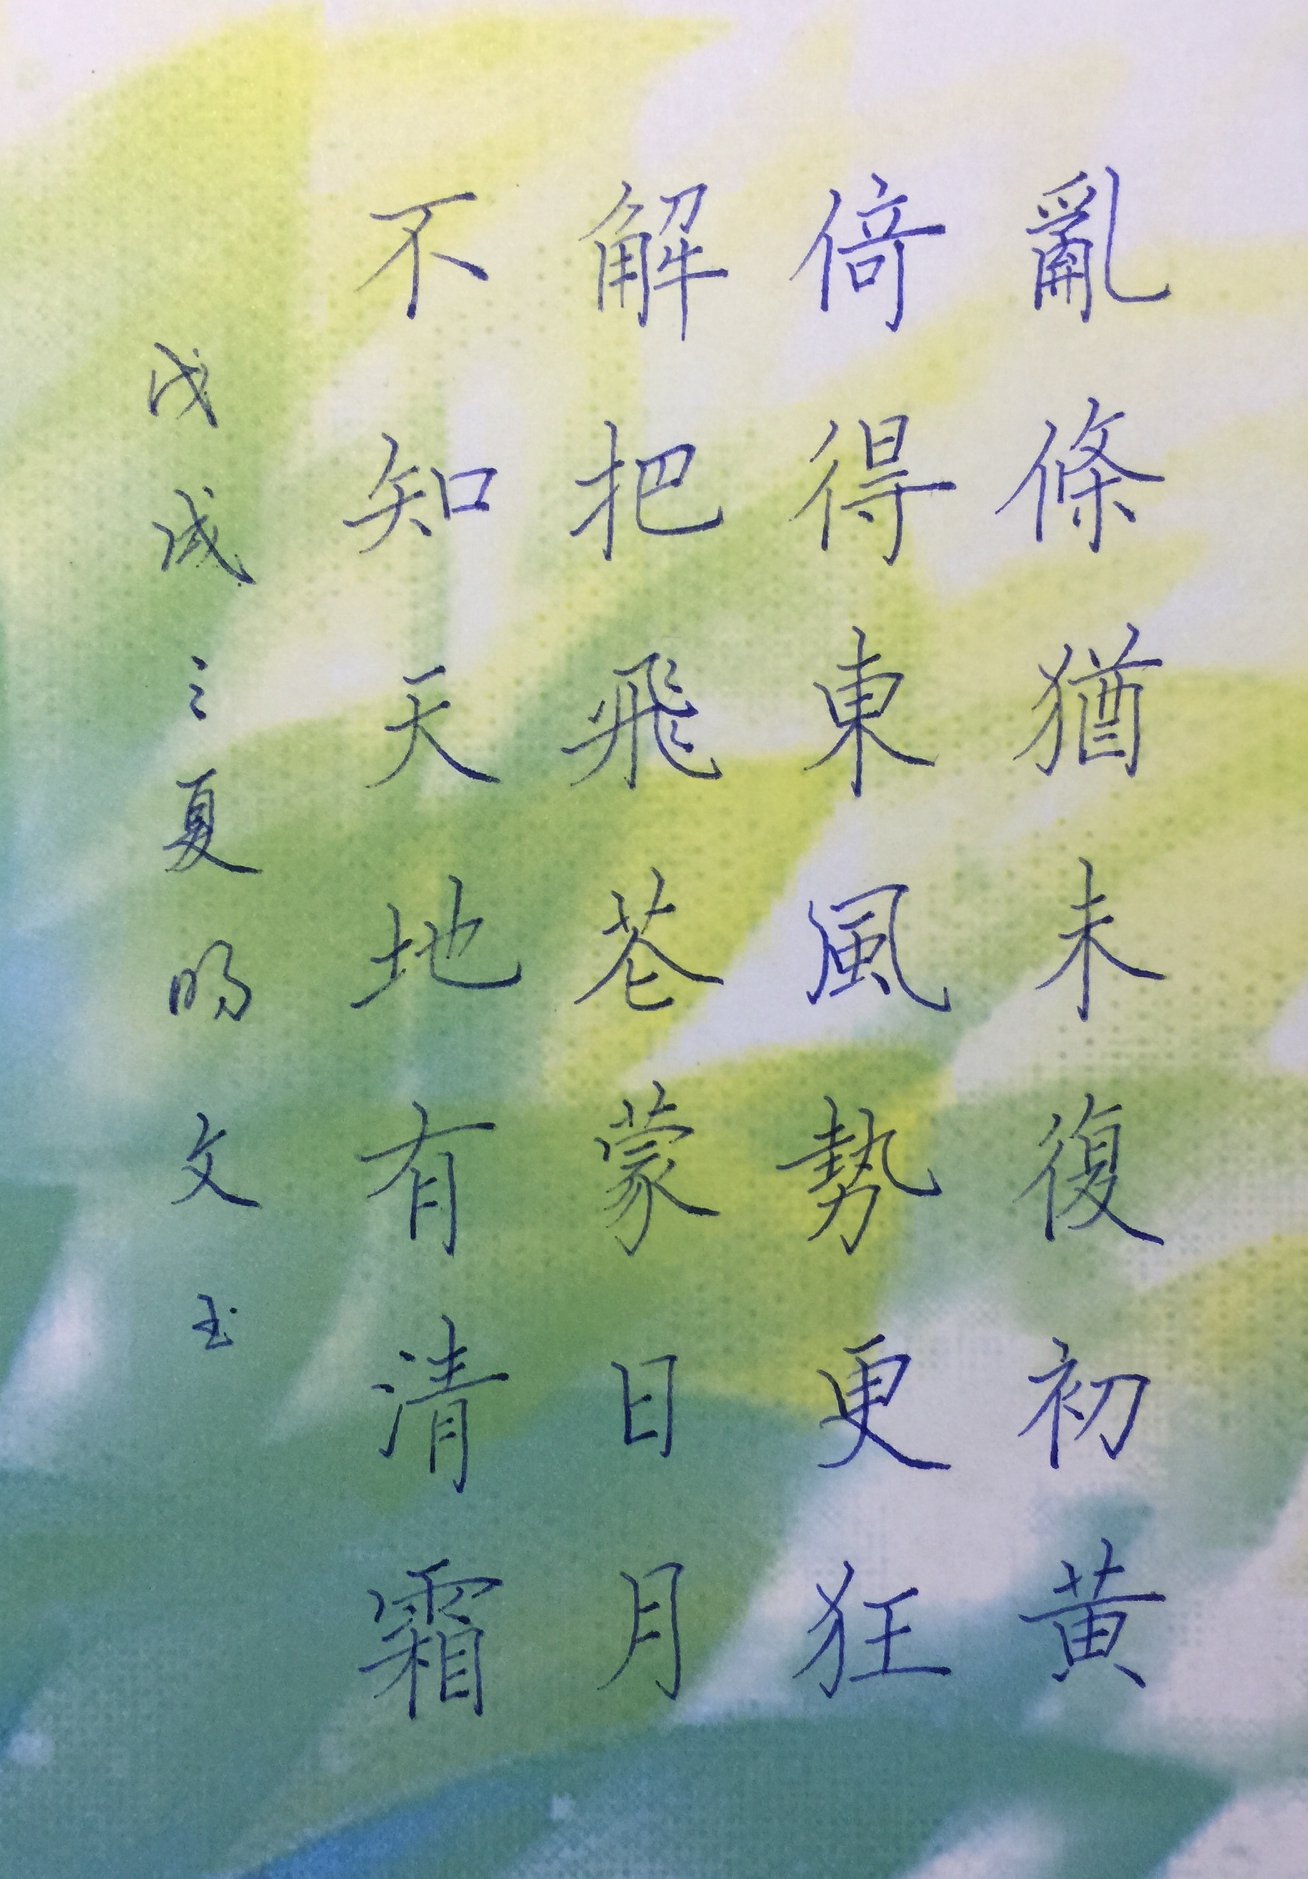 亂條猶未復初黃
倚得東風勢更狂
解把飛芲蒙日月
不知天地有清霜
戊戌之夏旸文玉